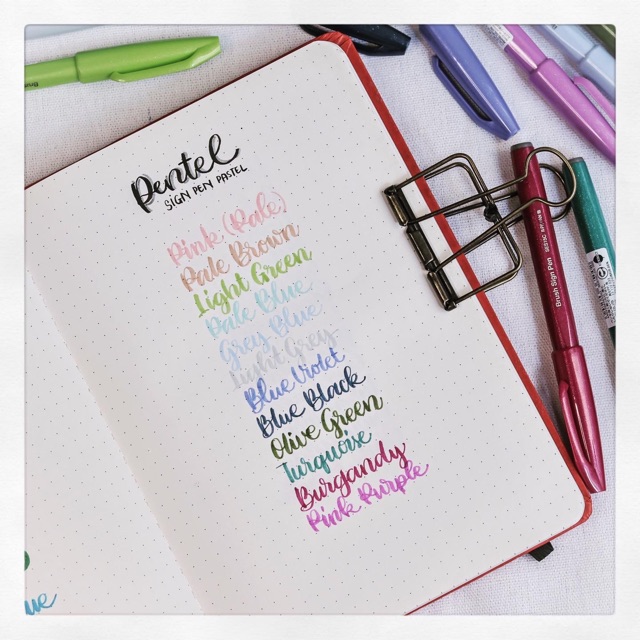 Pentel
SIGN PEN PASTEL
Pink (Pale)
Pale Brown
Light Green
Pale Blue
Grey Blue
Light Grey
Blue Violet
Blue Black
Olive Green
Turquoise
Burgandy
Pink Purple
Brush Sign Pen